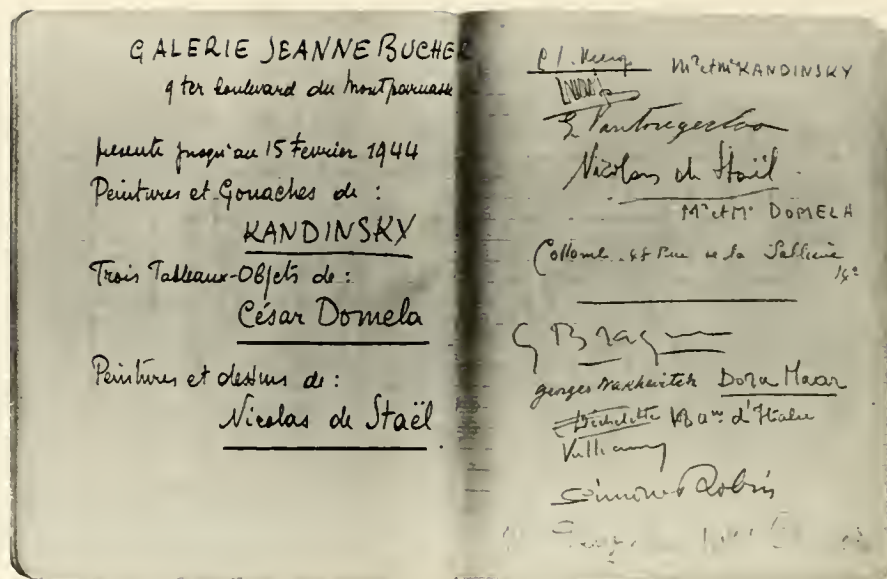 GALERIE JEANNE BUCHER
9 ter boulevard du Montparnasse
presente jusqu'au 15 Fevrier 1944
Peintures et Gouaches de :
KANDINSKY
Trois Tableaux-Objets de :
César Domela
Peintures et dessins de :
Nicolas de Staël
Mr et Me KANDINSKY
G Vantongerloo
Nicolas de Staël
Mr et Me DOMELA
rue de la Sablière
14e
G Braque
georges Dora Maar
d'Italie
Vulliamy
Simone